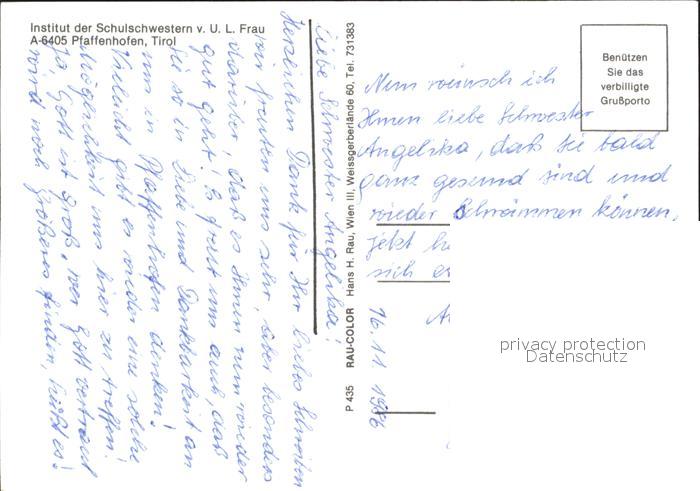 Institut der Schulschwestern v. U. L. Frau
A-6405 Pfaffenhofen, Tirol
Liebe Schwester Angelika!
Herzlichen Dank für Ihr liebes Schreiben
wir freuten uns sehr, aber besonders
darüber daß es Ihnen nun wieder
gut geht! Es freut uns auch, daß
Sie so in Liebe und Dankbarkeit an
uns in Pfaffenhofen denken!
Vielleicht gibt es wieder eine solche
Möglichkeit uns hier zu treffen!
Ja, Gott ist groß, wer Gott vertraut
wird noch Größeres finden, heißt es!
P 435 RAU-COLOR Hans H. Rau, Wien III, Weissgerberlände 60, Tel. 731383
Benützen
Sie das
verbilligte
Grußporto
Nun wünsch ich
Ihnen liebe Schwester
Angelika, daß Sie bald
ganz gesund sind und
wieder Schwimmen können,
jetzt
sich
16.11.1986
privacy protection
Datenschutz